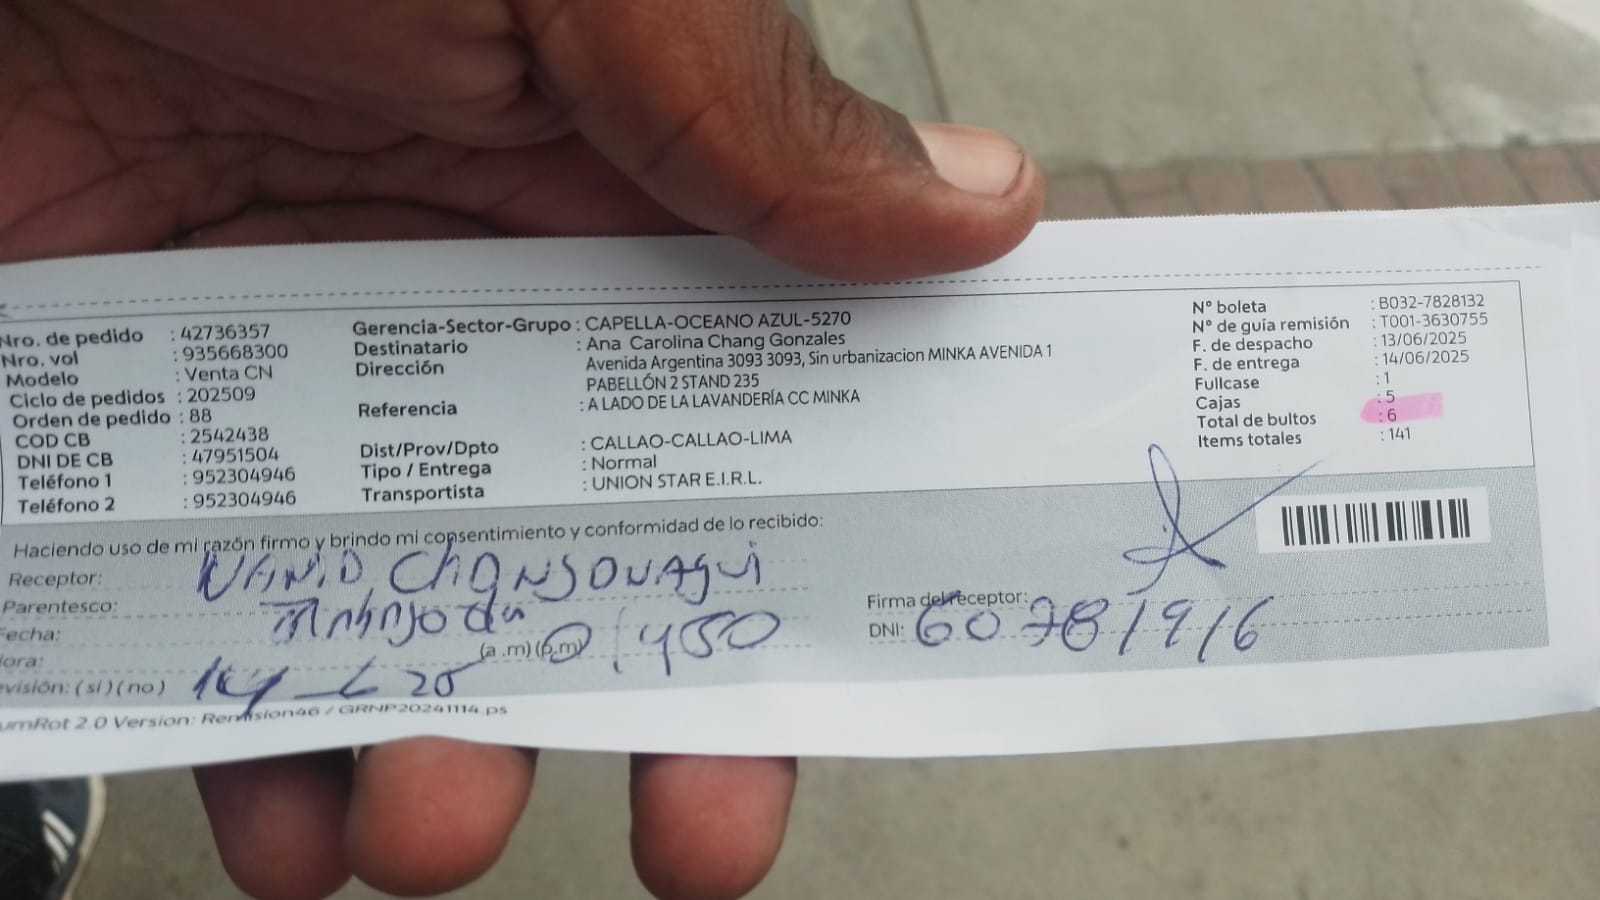 Nro. de pedido : 42736357
Nro. vol : 935668300
Modelo : Venta CN
Ciclo de pedidos : 202509
Orden de pedido : 88
COD CB : 2542438
DNI DE CB : 47951504
Teléfono 1 : 952304946
Teléfono 2 : 952304946
Gerencia-Sector-Grupo : CAPELLA-OCEANO AZUL-5270
Destinatario : Ana Carolina Chang Gonzales
Dirección : Avenida Argentina 3093 3093, Sin urbanizacion MINKA AVENIDA 1
PABELLÓN 2 STAND 235
Referencia : A LADO DE LA LAVANDERÍA CC MINKA
Dist/Prov/Dpto : CALLAO-CALLAO-LIMA
Tipo / Entrega : Normal
Transportista : UNION STAR E.I.R.L.
N° boleta : B032-7828132
N° de guía remisión : T001-3630755
F. de despacho : 13/06/2025
F. de entrega : 14/06/2025
Fullcase : 1
Cajas : 5
Total de bultos : 6
Items totales : 141
Haciendo uso de mi razón firmo y brindo mi consentimiento y conformidad de lo recibido:
Receptor:
Parentesco:
Fecha:
(a .m) (p.m)
evisión: ( si ) ( no )
Firma del receptor:
DNI: 60781916
umRot 2.0 Version: Remision46 / GRNP20241114.ps